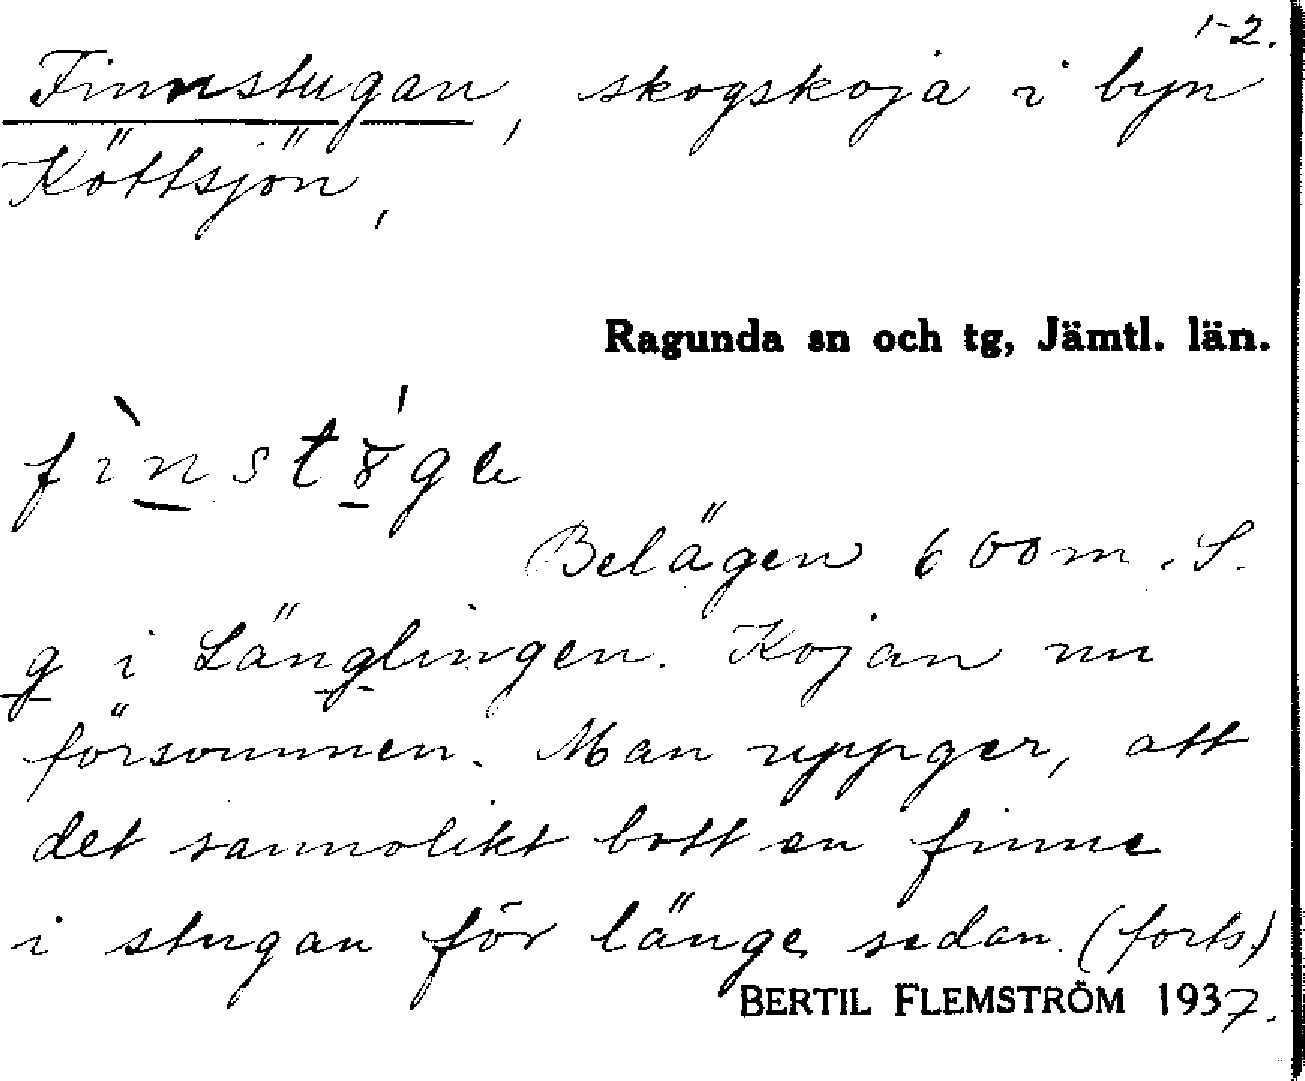 1-2.
Finnstugan, skogskoja i byn
Köttsjön,
Ragunda sn och tg, Jämtl. län.
Belägen 600 m. S.
g i Länglingen. Kojan nu
försvunnen. Man uppger, att
det sannolikt bott en finne
i stugan för länge sedan. (forts)
BERTIL FLEMSTRÖM 1937.